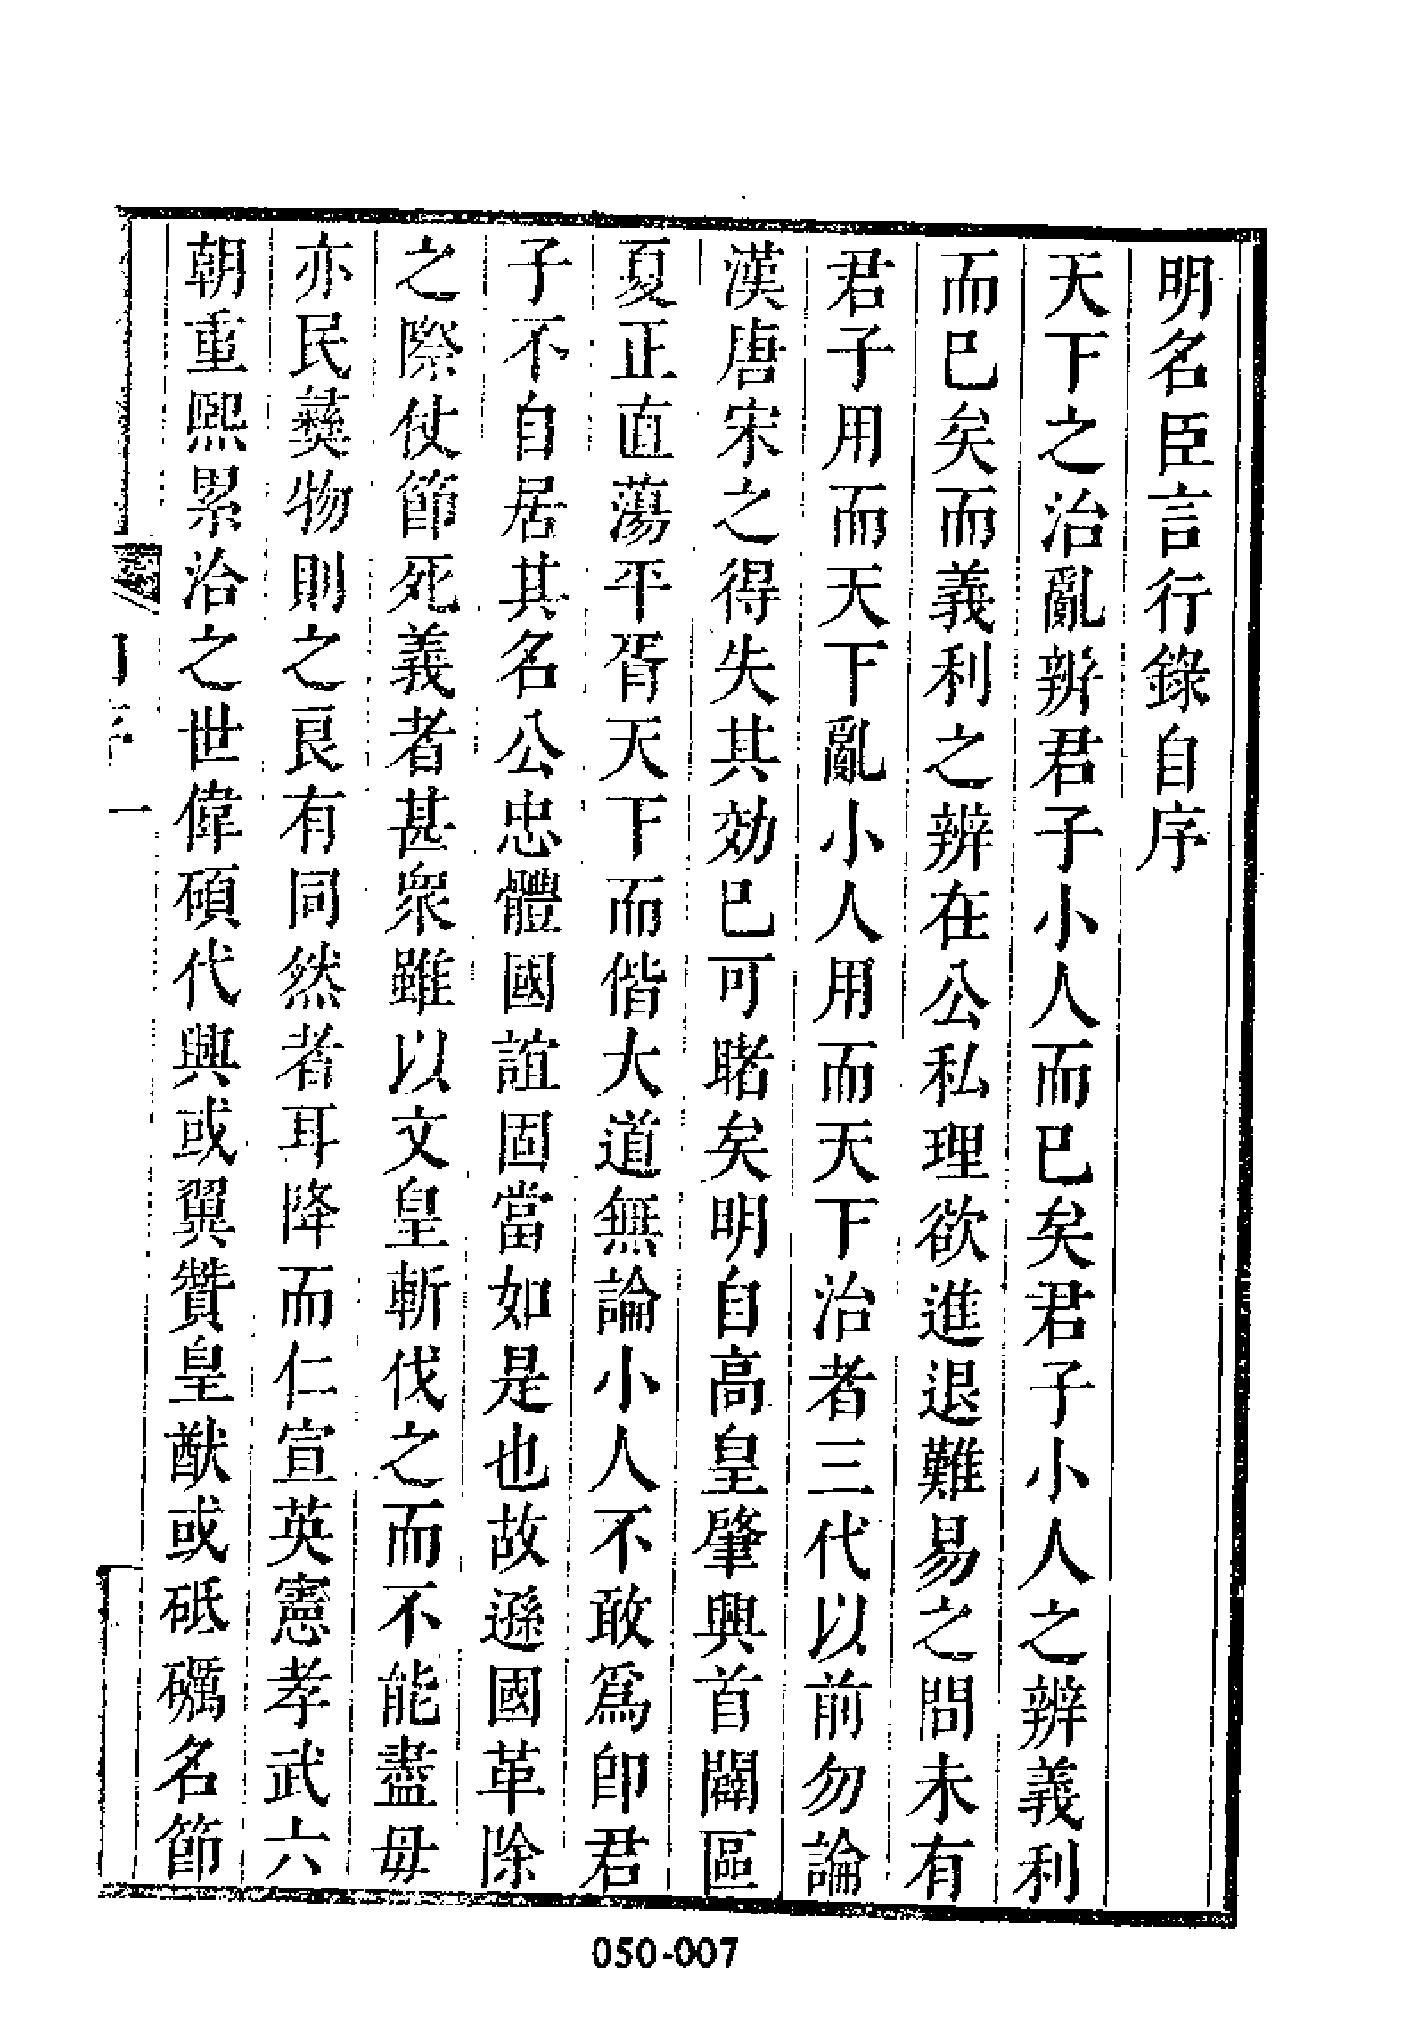 明名臣言行錄自序
天下之治亂辨君子小人而已矣君子小人之辨義利
而已矣而義利之辨在公私理欲進退難易之間未有
君子用而天下亂小人用而天下治者三代以前勿論
漢唐宋之得失其効已可睹矣明自高皇肇興首闢區
夏正直蕩平胥天下而偕大道無論小人不敢爲卽君
子不自居其名公忠體國誼固當如是也故遜國革除
之際仗節死義者甚衆雖以文皇斬伐之而不能盡毋
亦民彝物則之良有同然者耳降而仁宣英憲孝武六
朝重熙累洽之世偉碩代興或翼贊皇猷或砥礪名節
自序
一
050-007